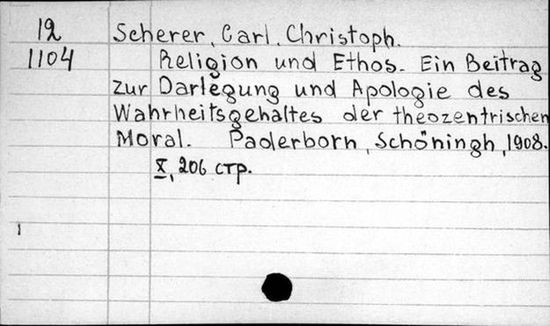 12
1104
Scherer, Carl. Christoph.
Religion und Ethos. Ein Beitrag
zur Darlegung und Apologie des
Wahrheitsgehaltes der theozentrischen
Moral. Paderborn, Schöningh, 1908.
X, 206 стр.